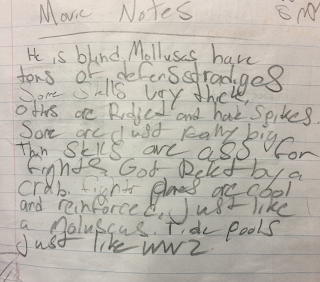 Movie Notes
He is blind, Molluscs have
tons of defense stradiges
Some Skills very thick,
others are Ridjed and have Spikes.
Some are Just really big
thin Skells are ass for
Fights. Got Rekt by a
crab. Fights Planes are cool
and reinforced, Just like
a Moluscus. Tide pools
Just like WW2